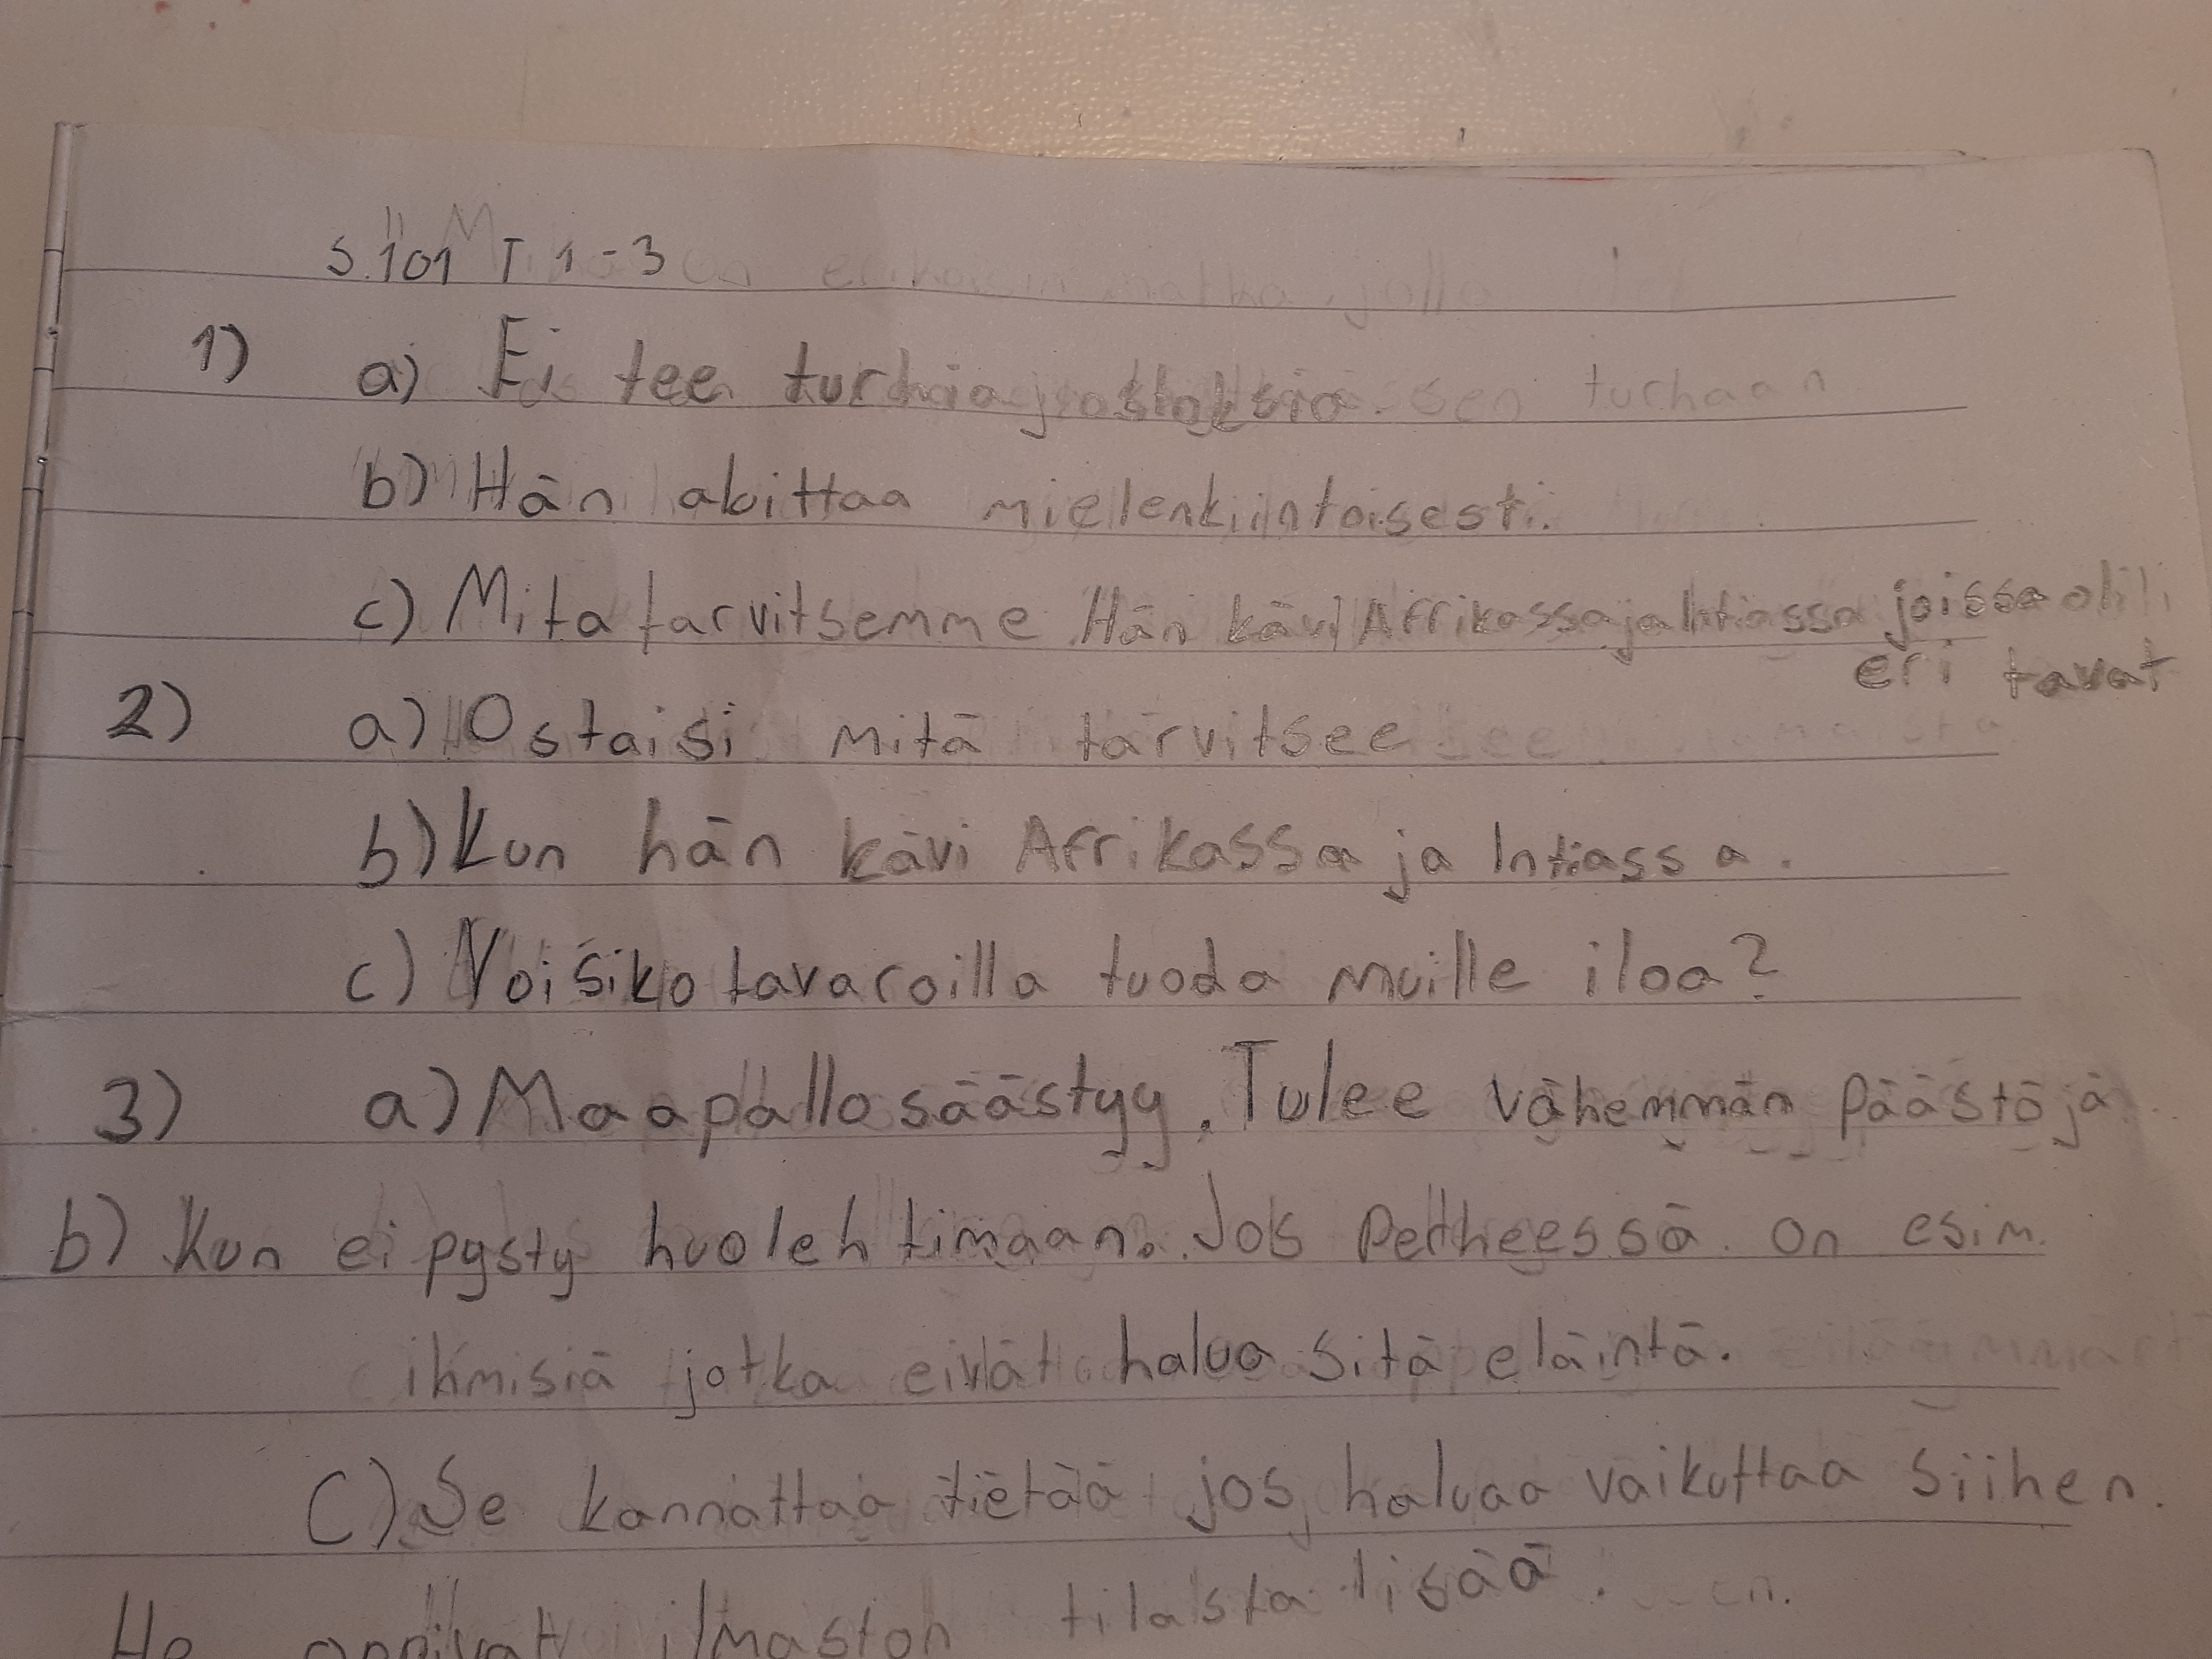 S.101 T 1-3
1) a) Ei tee turhia ostoksia.
b) Hän aloittaa mielenkiintoisesti.
c) Mitä tarvitsemme. Hän kävi Afrikassa ja Intiassa joissa oli
eri tavat
2) a) Ostaisi mitä tarvitsee
b) Kun hän kävi Afrikassa ja Intiassa.
c) Voisiko tavaroilla tuoda muille iloa?
3) a) Maapallo säästyy. Tulee vähemmän päästöjä
b) Kun ei pysty huolehtimaan. Jos perheessä on esim.
ihmisiä jotka eivät halua sitä eläintä.
C) Se kannattaa tietää jos haluaa vaikuttaa siihen.
He oppivat ilmaston tilasta lisää.